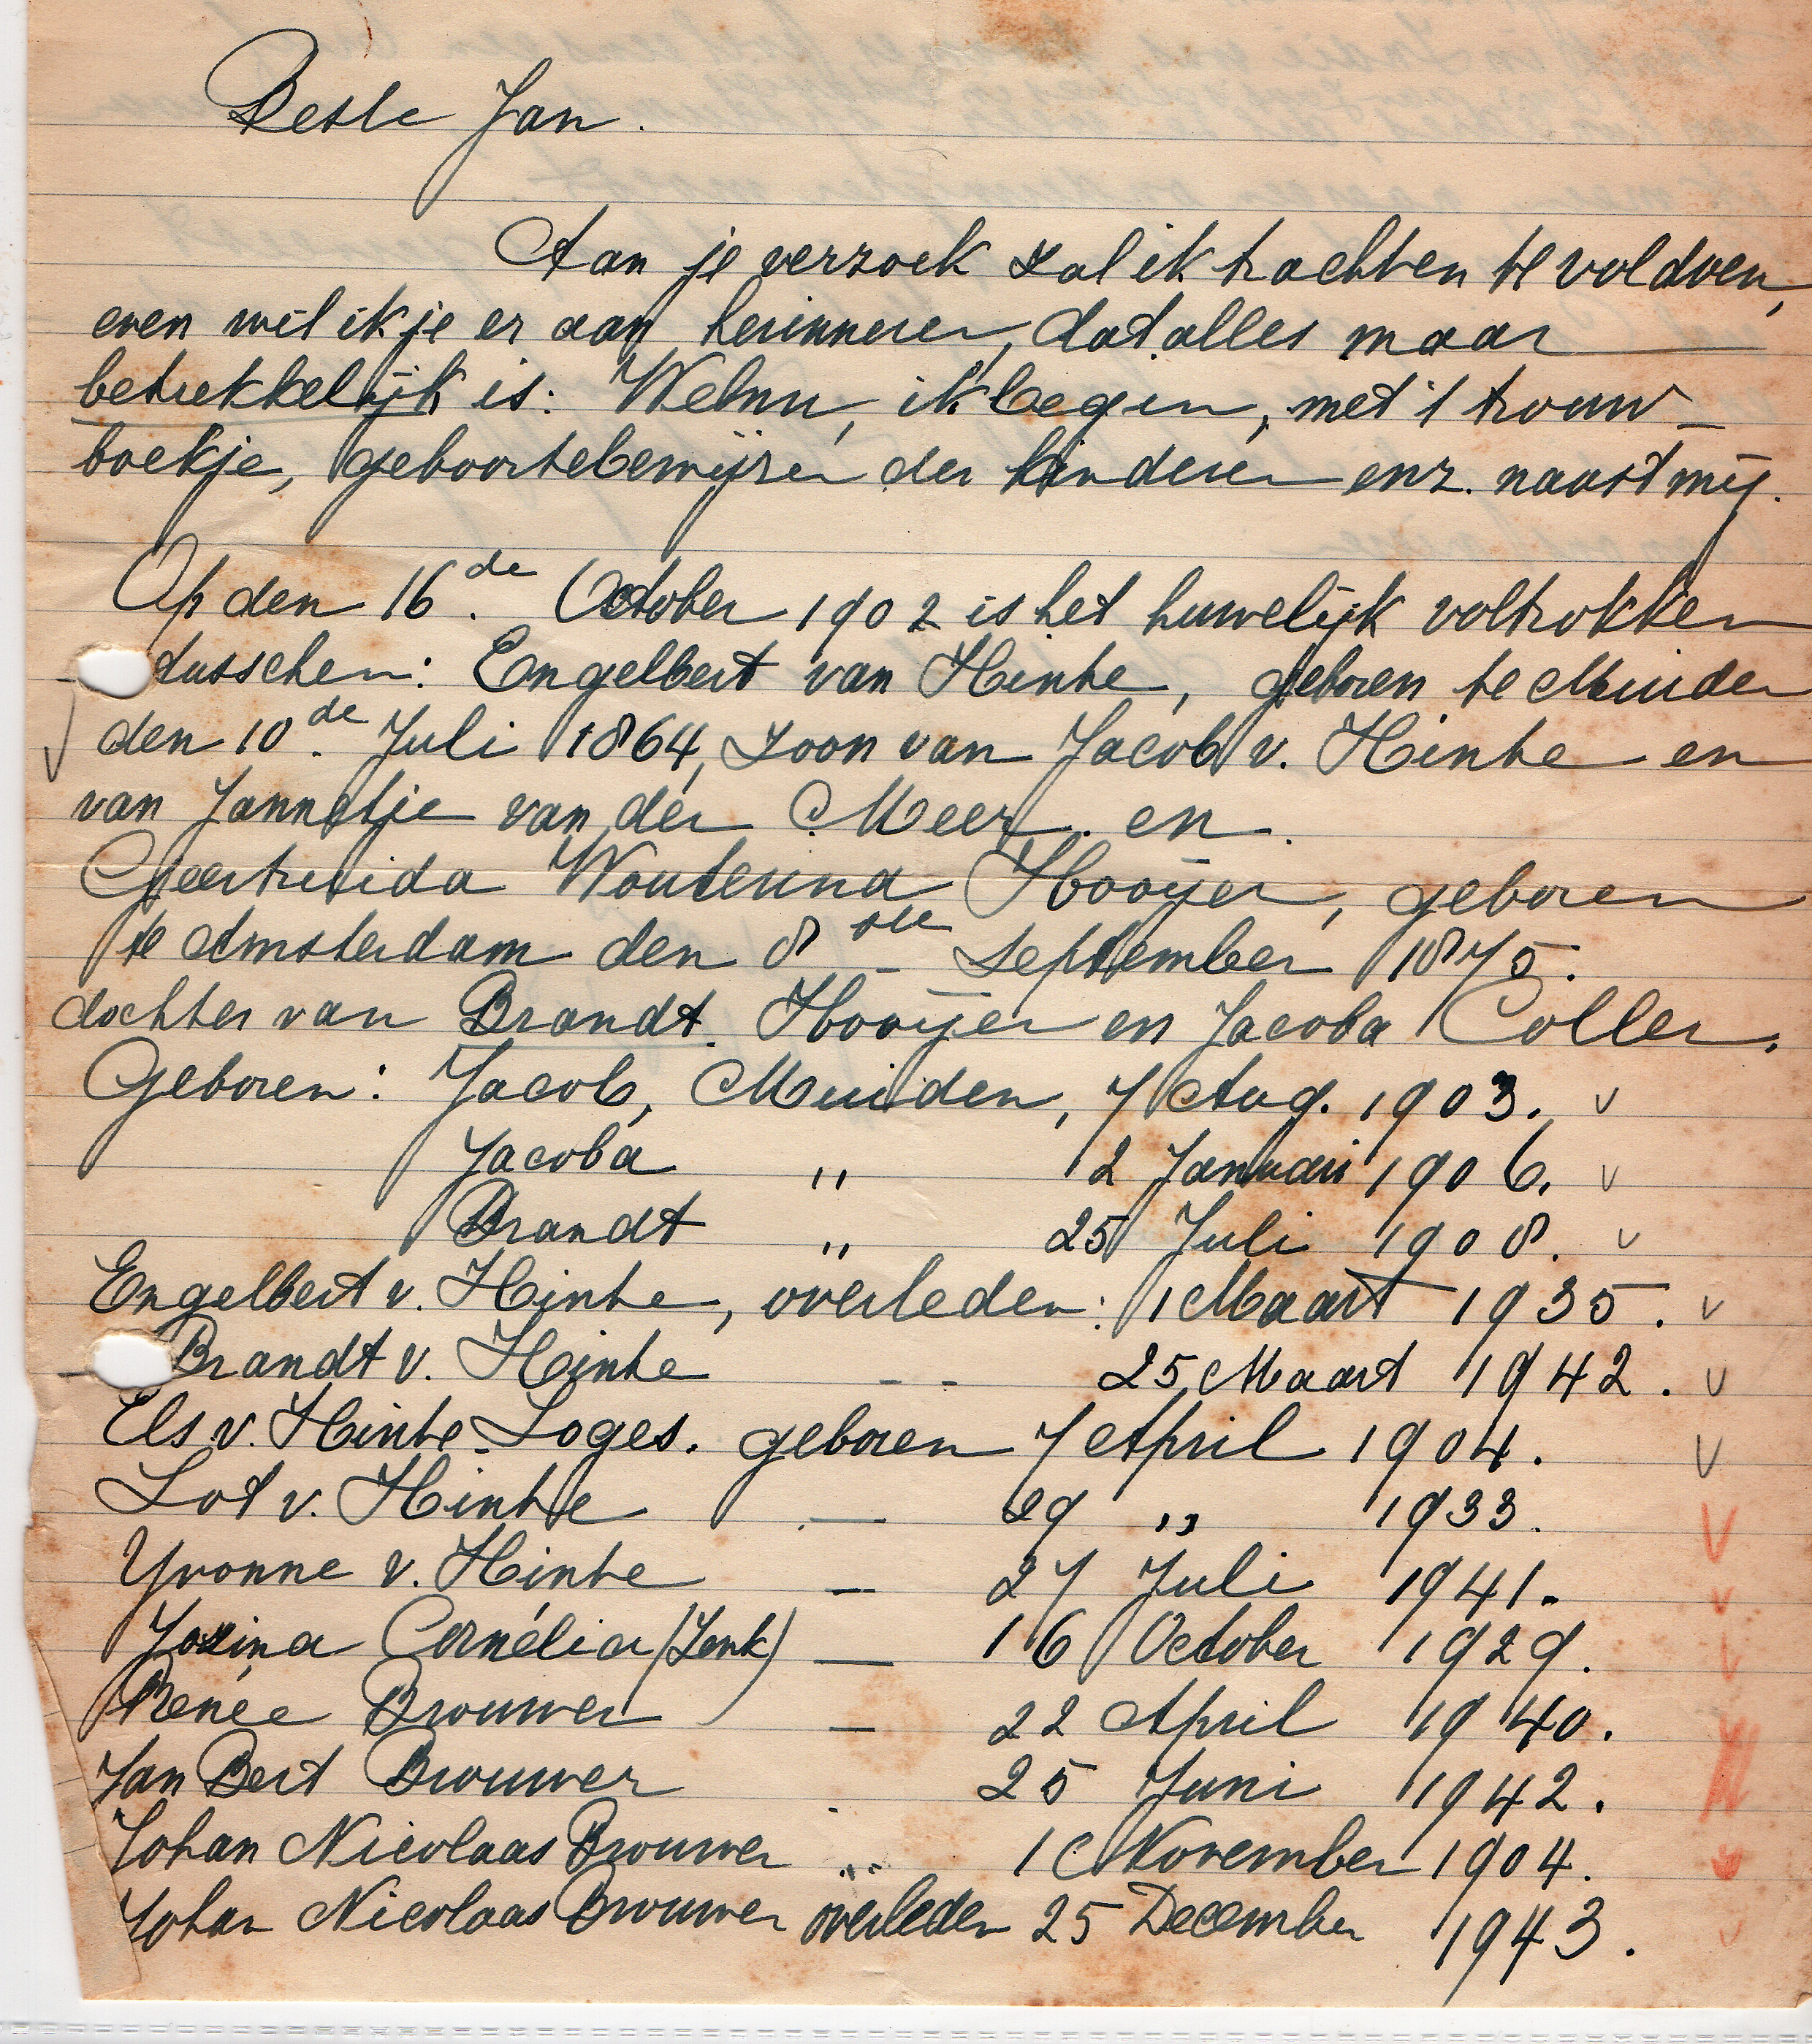 Beste Jan.
Aan je verzoek zal ik trachten te voldoen,
even wil ik je er aan herinneren, dat alles maar
betrekkelijk is: Welnu, ik begin, met 't trouw-
boekje, geboortebewijzen der kinderen enz. naast mij.
Op den 16de October 1902 is het huwelijk voltrokken
tusschen: Engelbert van Hinte, geboren te Muiden
den 10de Juli 1864, zoon van Jacob v. Hinte en
van Jannetje van der Meer. en.
Geertruida Wouterina Hooijer, geboren
te Amsterdam den 8ste September 1875.
dochter van Brandt. Hooijer en Jacoba Coller.
Geboren: Jacob, Muiden, 7 Aug. 1903. v
Jacoba " 12 Januari 1906. v
Brandt " 25 Juli 1908. v
Engelbert v. Hinte, overleden: 1 Maart 1935. v
Brandt v. Hinte - - 25 Maart 1942. v
Els v. Hinte-Loges. geboren 7 April 1904. v
Lot v. Hinte — 29 " 1933. v
Yvonne v. Hinte — 27 Juli 1941. v
Jozina Cornélia (Lenk) — 16 October 1929. v
Renée Brouwer — 22 April 1940.
Jan Bert Brouwer - 25 Juni 1942.
Johan Nicolaas Brouwer " 1 November 1904.
Johan Nicolaas Brouwer overleden 25 December 1943.